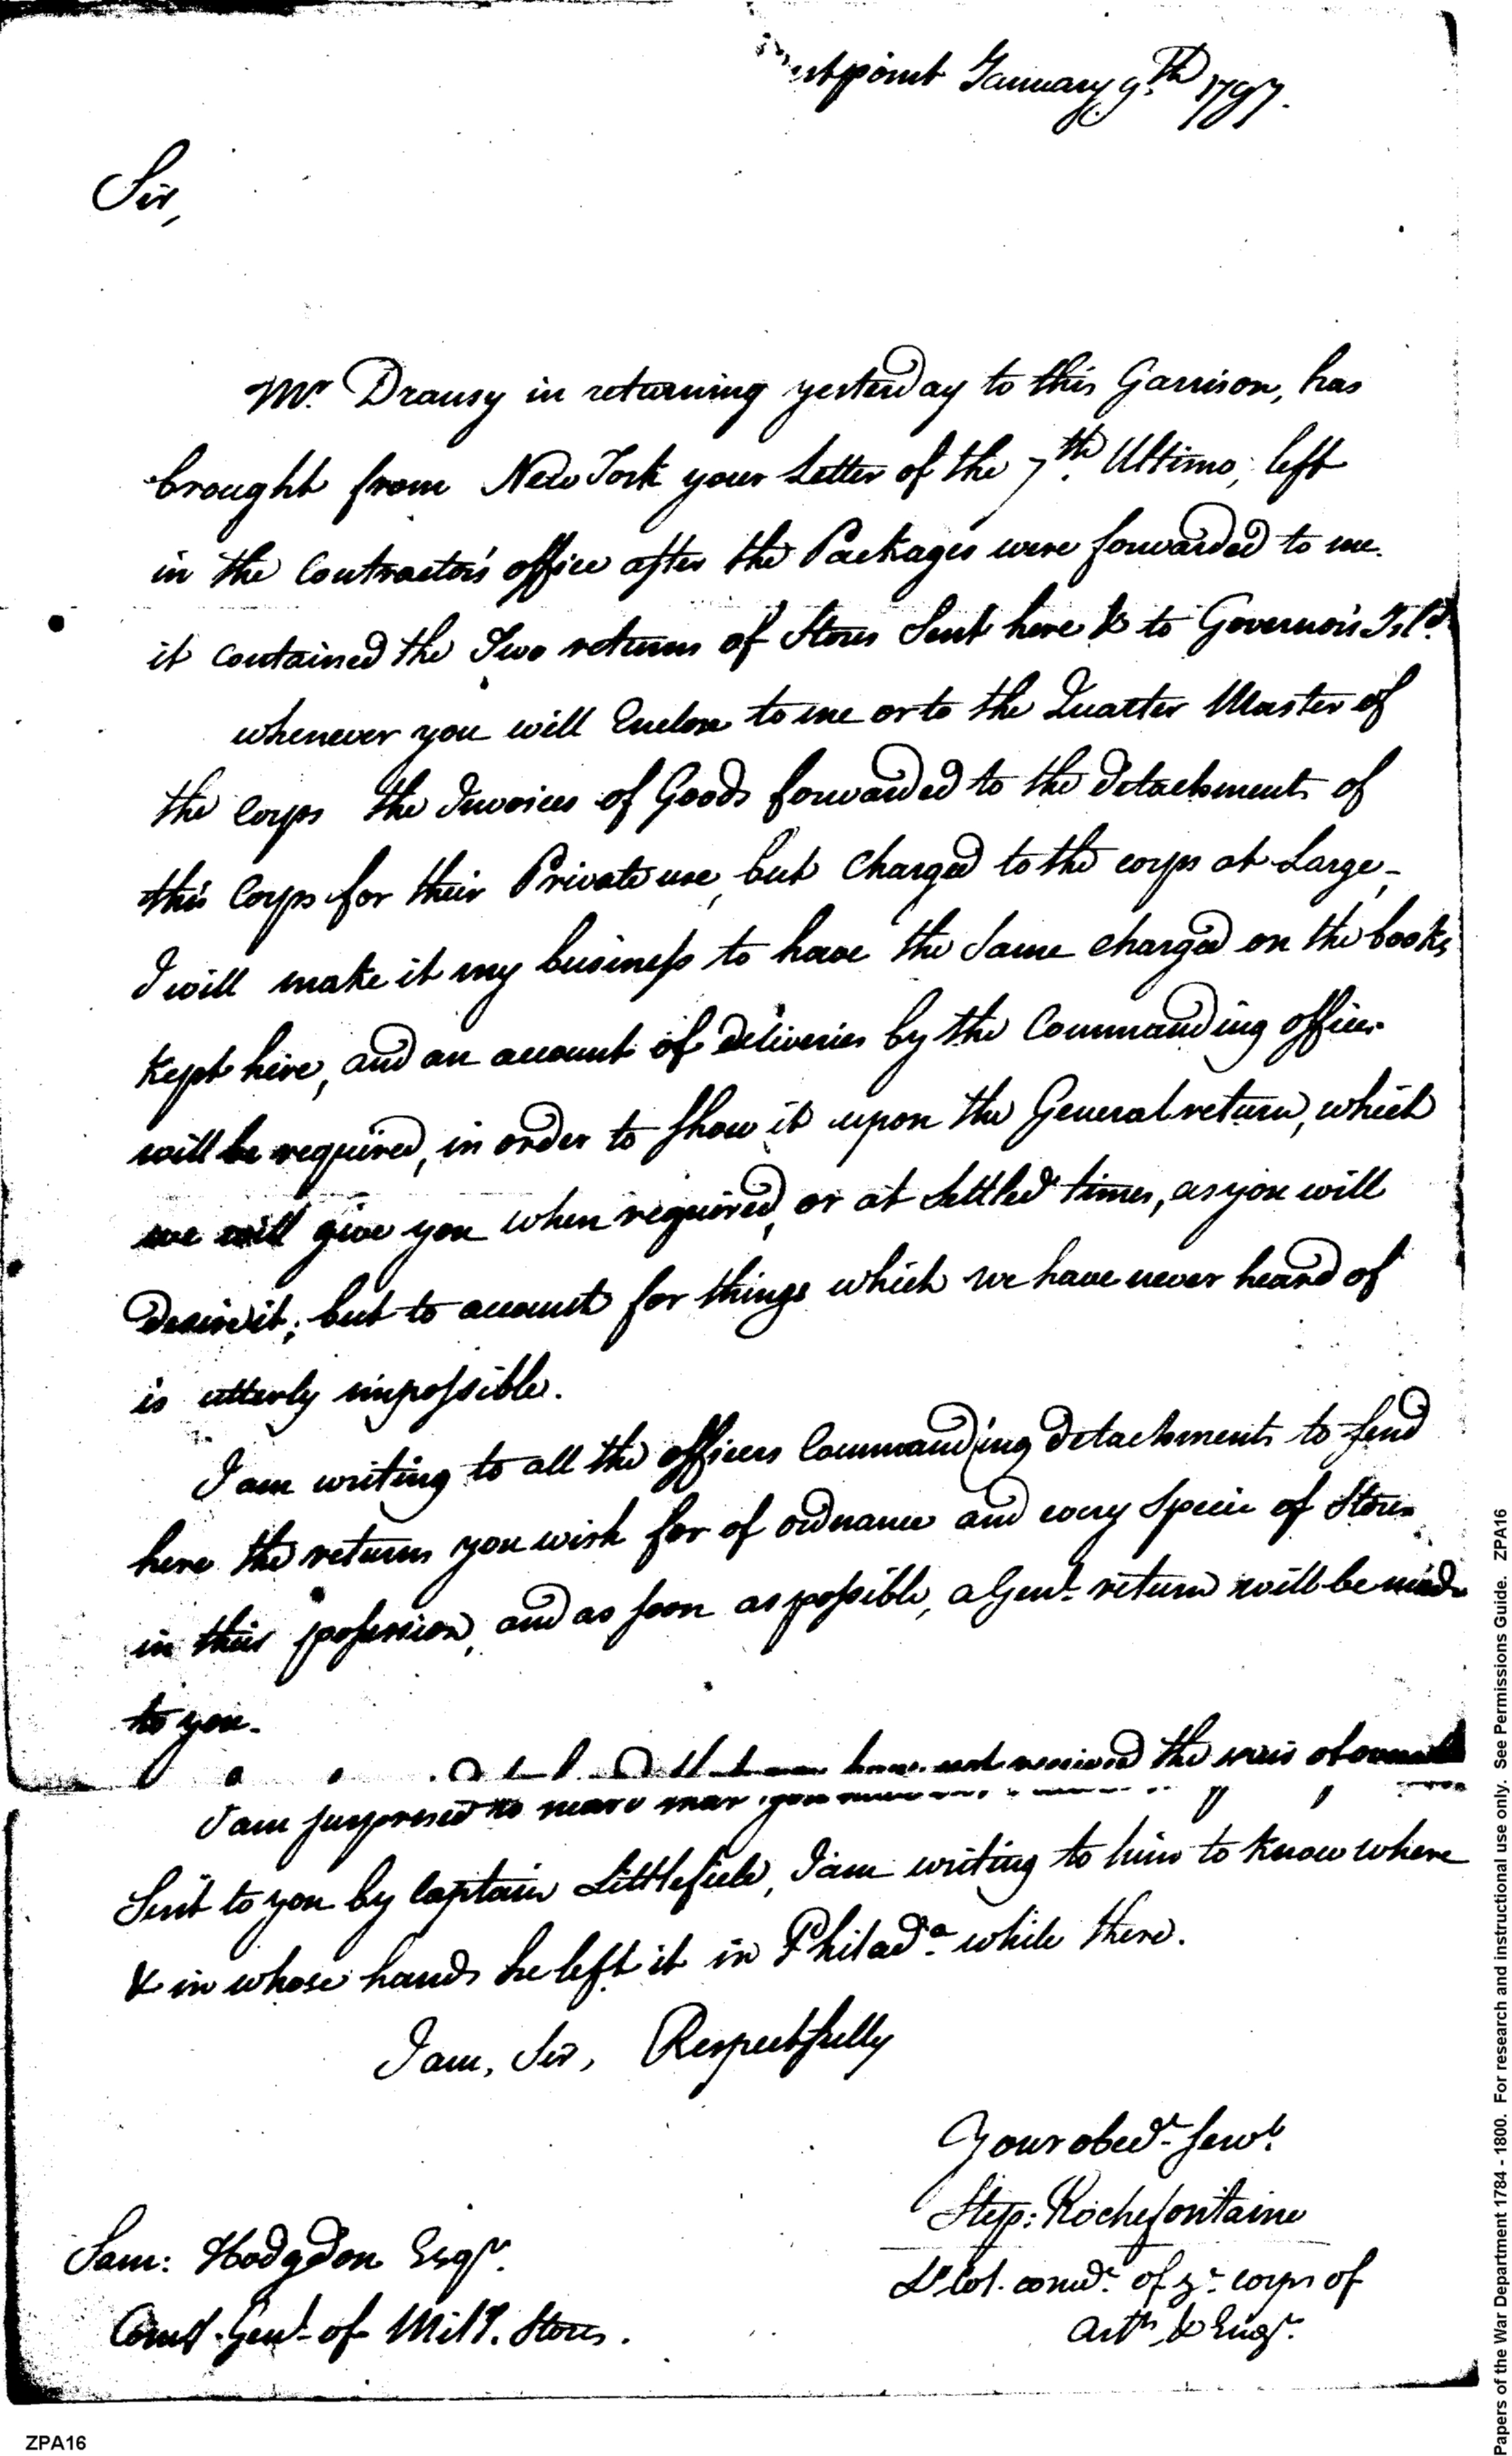 Westpoint January 9th 1797.
Sir,
Mr. Drausy in returning yesterday to this Garrison, has
brought from New York your Letter of the 7th. Ultimo, left
in the Contractor's office after the Packages were forwarded to me.
it contained the Two returns of Stores Sent here & to Governor's Isld.
whenever you will Enclose to me or to the Quarter Master of
the Corps the Invoices of Goods forwarded to the detachments of
this Corps for their Private use, but Charged to the corps at Large,
I will make it my business to have the Same charged on the books
kept here, and an account of deliveries by the Commanding officer
will be required, in order to show it upon the General return, which
we will give you when required, or at Settled times, as you will
Desire it; but to account for things which we have never heard of
is utterly impossible.
I am writing to all the officers Commanding detachments to send
here the returns you wish for of ordnance and every Specie of Stores
in their possession, and as soon as possible, a Genl. return will be made
to you.
I am surprised to hear that you have not received the
Sent to you by Captain Littlefield, I am writing to him to know where
& in whose hands he left it in Philada. while there.
I am, Sir, Respectfully
Your obedt. Servt.
Step: Rochefontaine
Lt Col. comdt. of ye. corps of
Arts & Engrs.
Sam: Hodgdon Esqr.
Comy. Genl. of Mily. Stores.
Papers of the War Department 1784 - 1800. For research and instructional use only. See Permissions Guide. ZPA16
ZPA16